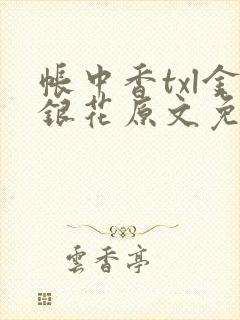 帳中香txl金
銀花原文免
雲香亭